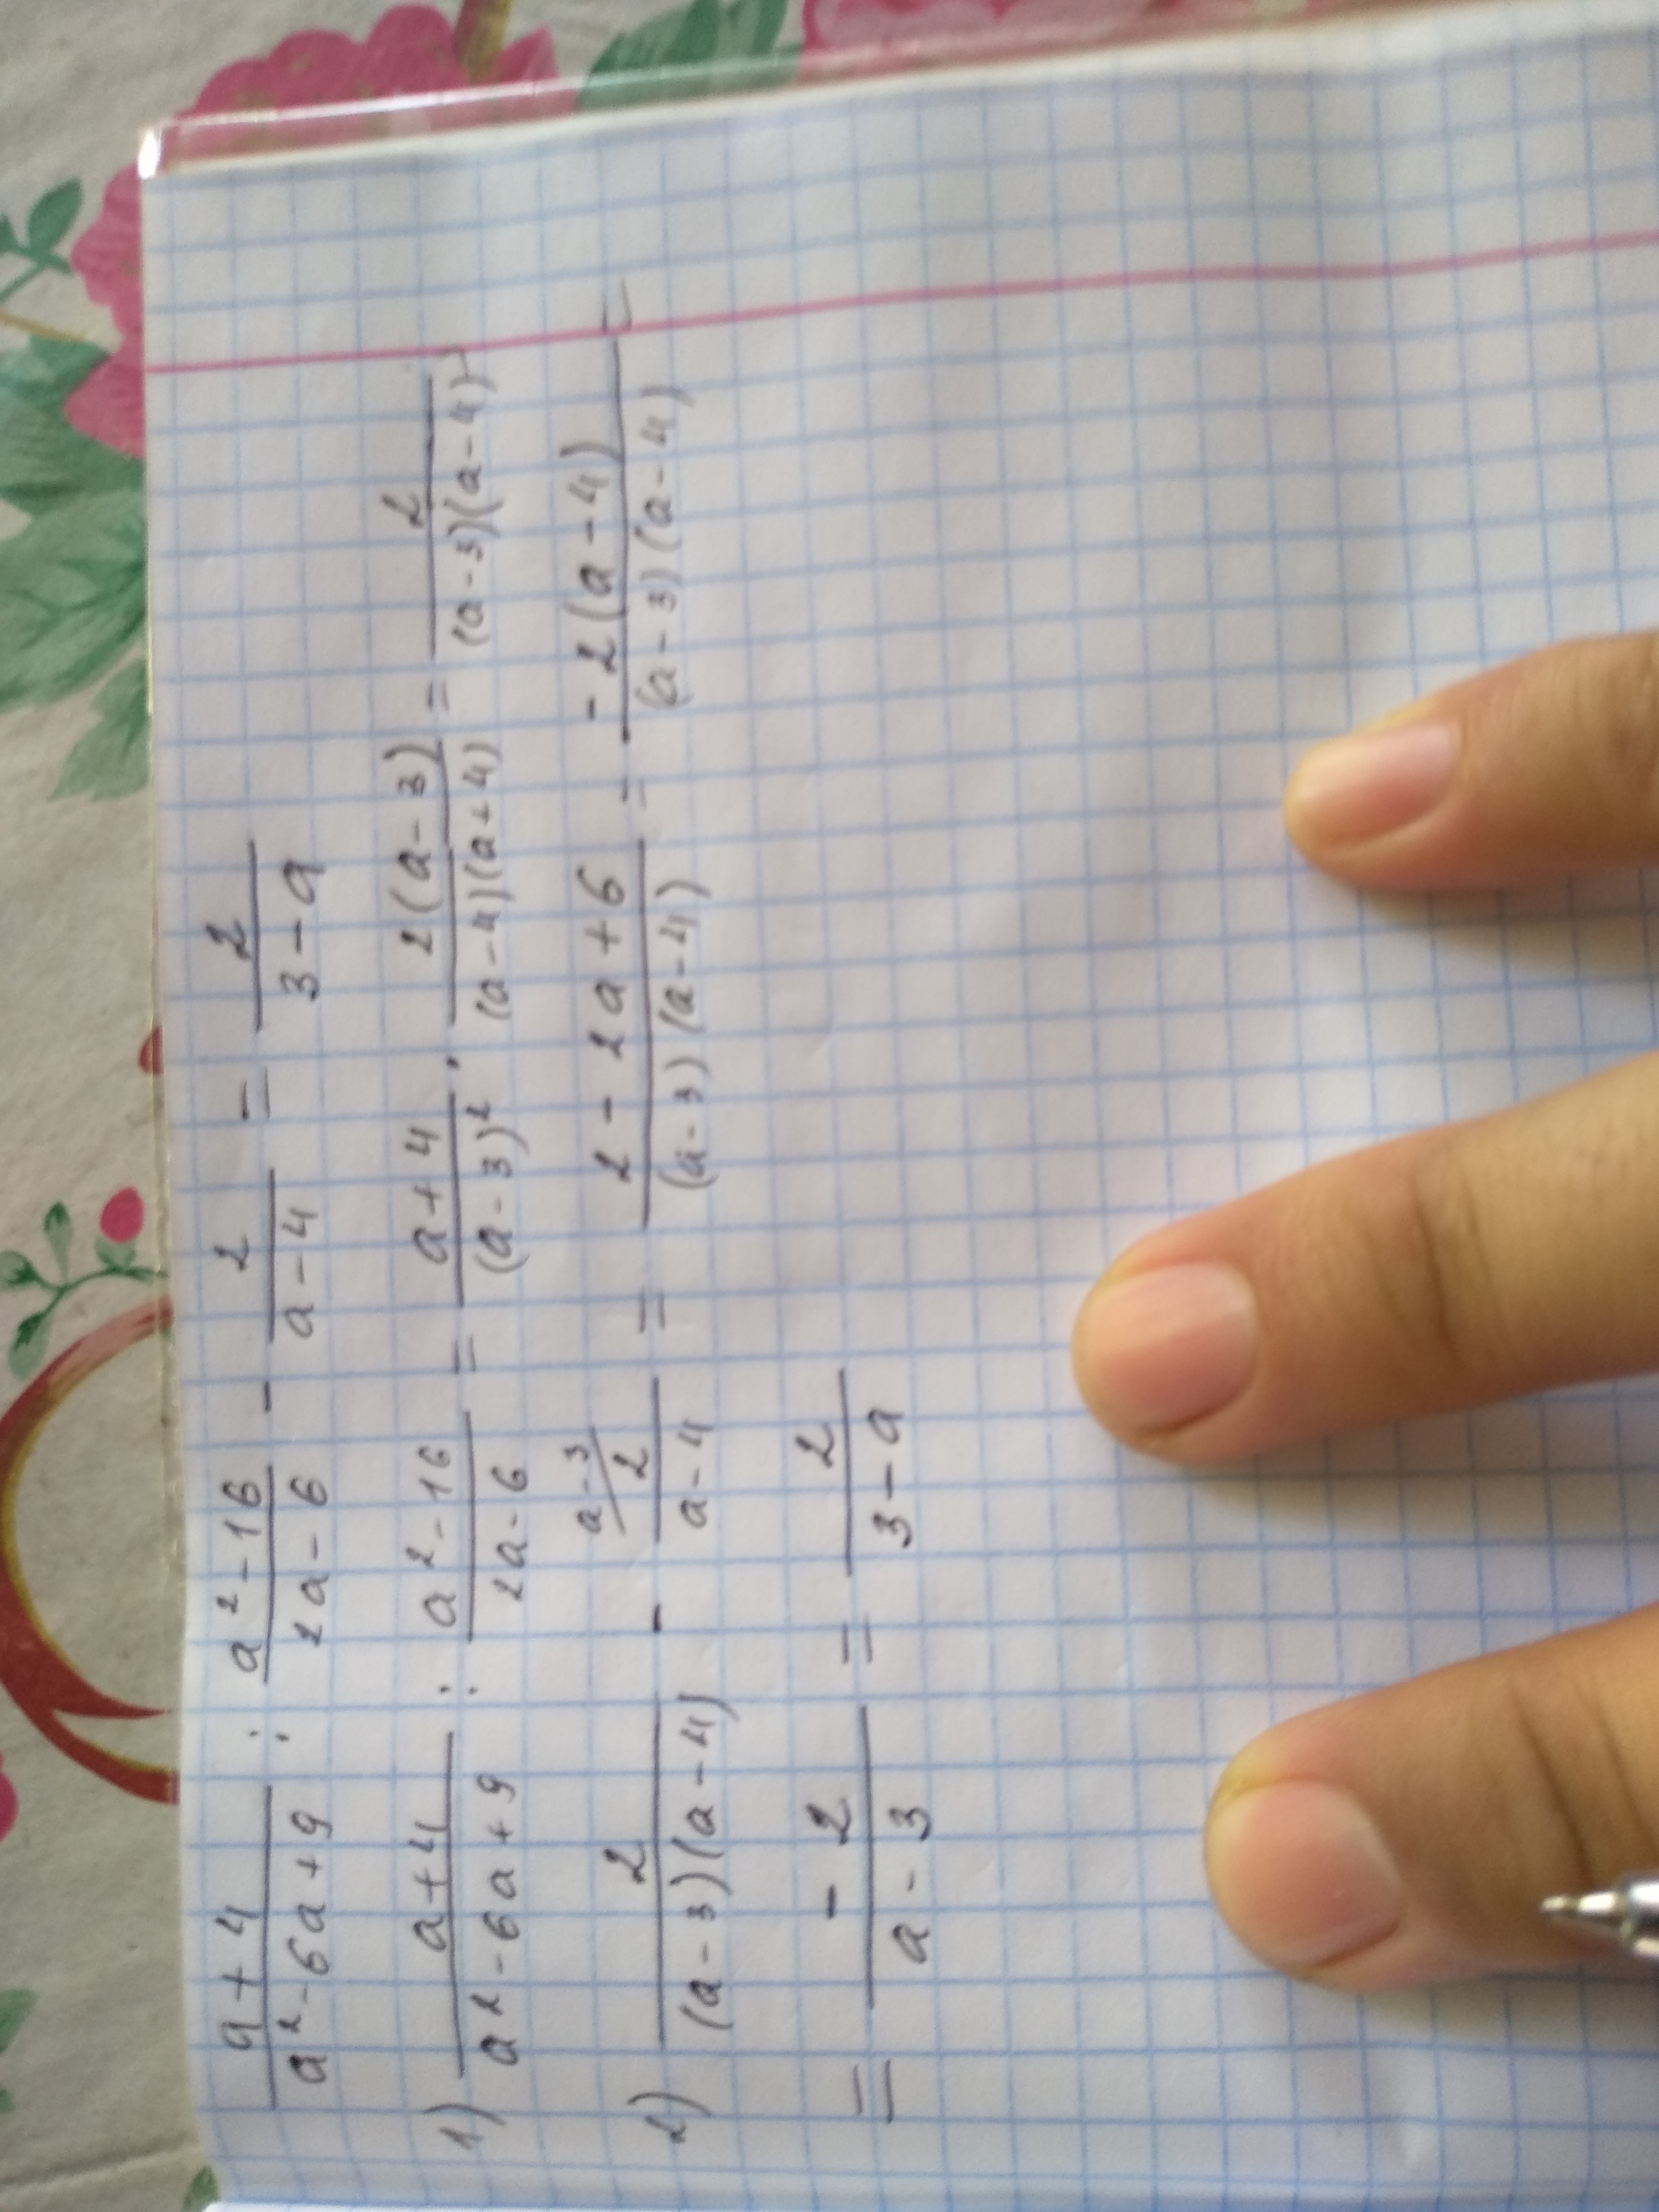 (a+4)/(a²-6a+9) : (a²-16)/(2a-6) - 2/(a-4) = 2/(3-a)
1) (a+4)/(a²-6a+9) : (a²-16)/(2a-6) = (a+4)/(a-3)² · 2(a-3)/((a-4)(a+4)) = 2/((a-3)(a-4))
2) 2/((a-3)(a-4)) - a-3/ 2/(a-4) = (2-2a+6)/((a-3)(a-4)) = -2(a-4)/((a-3)(a-4)) =
= -2/(a-3) = 2/(3-a)